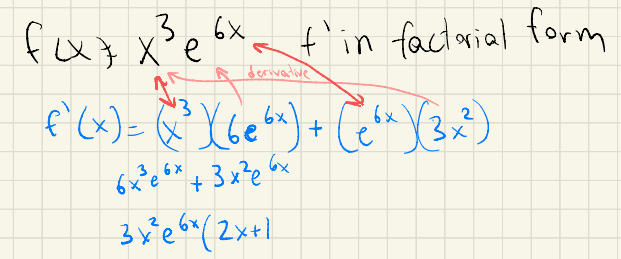 f(x)= x³e⁶ˣ f' in factorial form
derivative
f'(x) = (x³)(6e⁶ˣ) + (e⁶ˣ)(3x²)
6x³e⁶ˣ + 3x²e⁶ˣ
3x²e⁶ˣ(2x+1